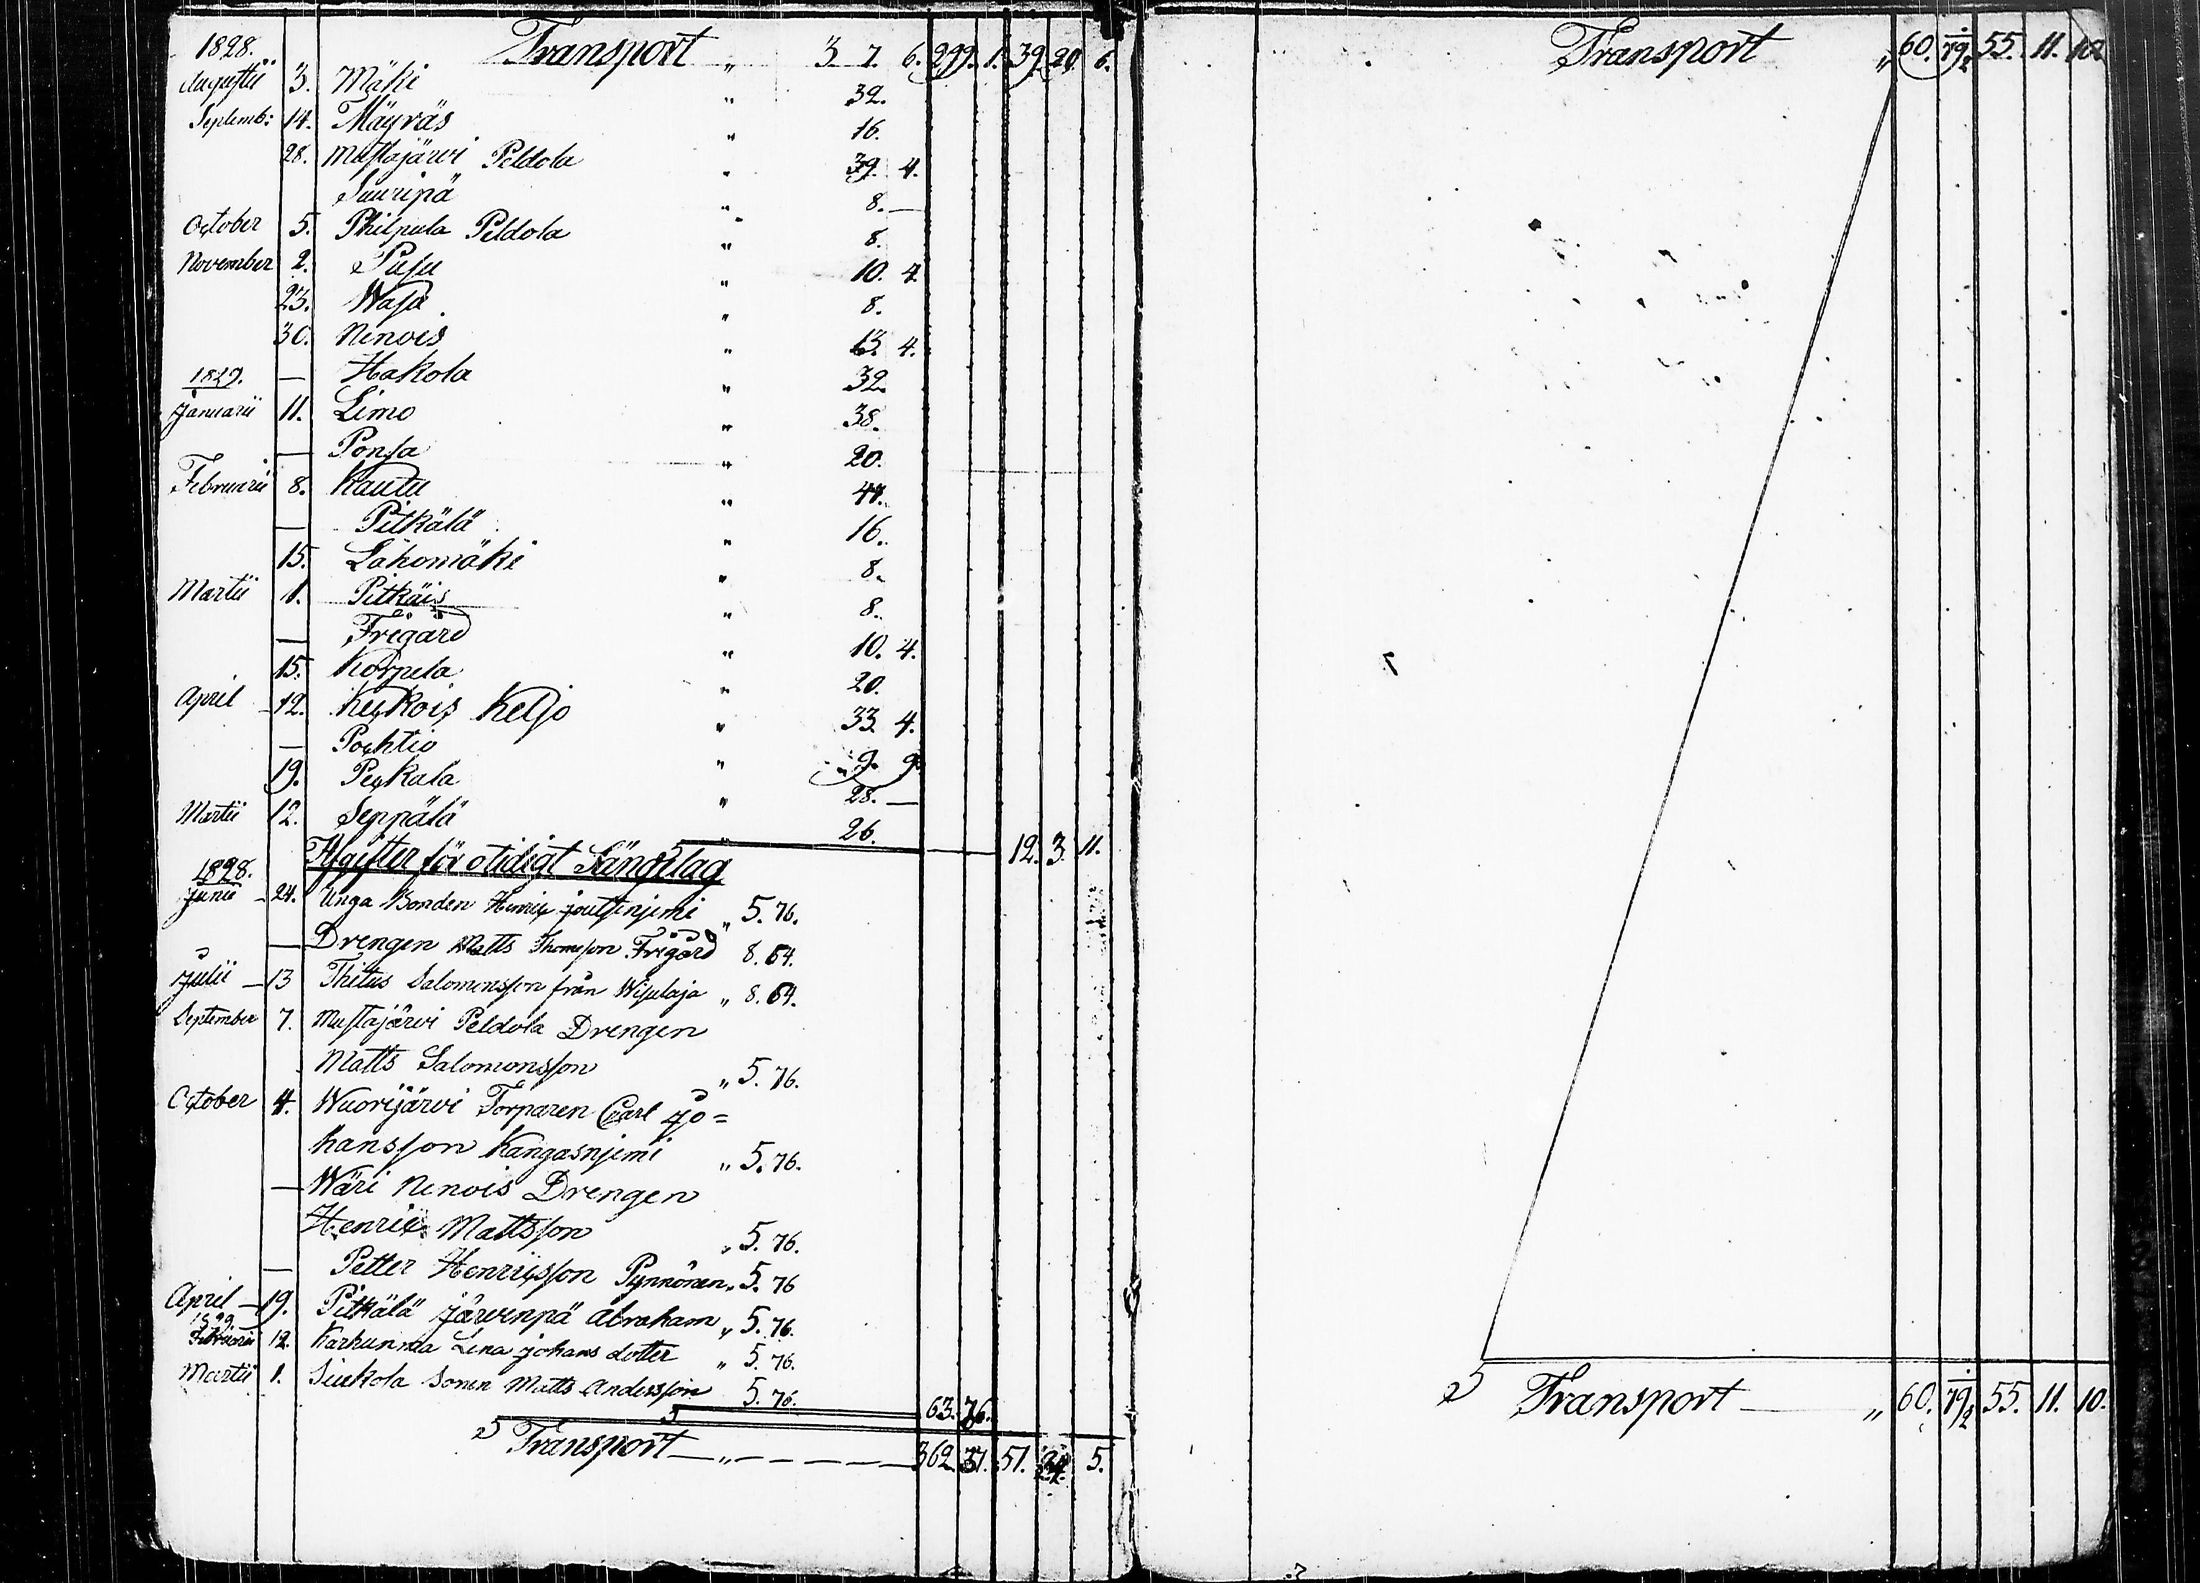 1828. Transport " 3. 7. 6. 299. 1. 39. 20. 6.
Augustii 3. Mäki " 32.
Septemb: 14. Mäyräs " 16.
28. Mustajärvi Peldola " 39. 4.
Suuripä " 8. —
October 5. Philpula Peldola " 8.
November 2. Pusu " 10. 4.
23. Wasa " 8.
30. Nenois " 13. 4.
— Hakola " 32.
1829.
Januarii 11. Limo " 38.
— Ponsa " 20.
Februarii 8. Kautu "
— Pitkälä " 16.
15. Lahomäki " 8.
Martii 1. Pitkäis " 8.
— Frigård " 10. 4.
15. Korpela " 20.
April 12. Keckois Keljo " 33. 4.
— Pochtio " 9. 9.
19. Peckala " 28. —
Martii 12. Seppälä " 26.
12. 3. 11.
Afgifter för otidigt Sängelag
1828.
Junii 24. Unga Bonden Henric joutsenjemi " 5. 76.
— Drengen Matts Thomsson Frigård 8. 64.
Julii — 13 Thitus Salomonsson från Wisulaja " 8. 64.
September 7. Mustajärvi Peldola Drengen
Matts Salomonsson " 5. 76.
October 4. Wuorijärvi Torparen Carl Jo=
hansson Kangasnjemi " 5. 76.
— Wäri Nenois Drengen
Henric Mattsson " 5. 76.
— Petter Henricsson Pynnönen " 5. 76
April — 19. Pitkälä Järvenpä Abraham " 5. 76.
1829.
Februarii 12. Karkunma Lena johans dotter " 5. 76.
Martii 1. Siukola Sonen Matts Andersson 5. 76.
63. 76.
Transport — " — — — — 362. 37. 51. 24. 5.
Transport " 60. 79½ 55. 11. 10.
Transport — " 60. 79½ 55. 11. 10.